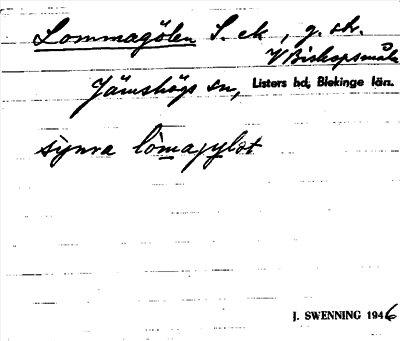 Lommagölen S. ek, g. str.
V Biskopsmåla
Jämshögs sn, Listers hd, Blekinge län.
lömagylət
J. SWENNING 1946